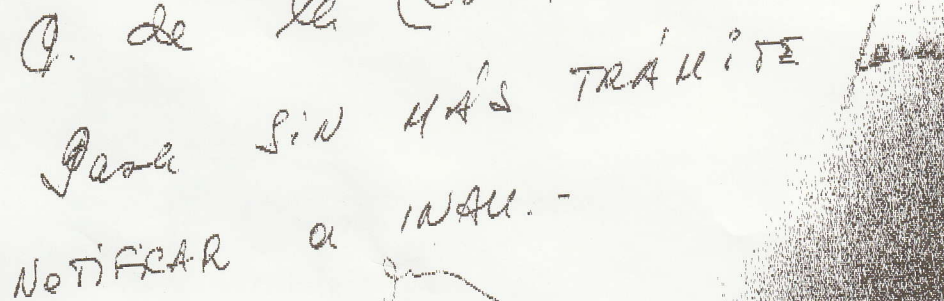 Q. de la
Pase SIN MÁS TRÁMITE para
NOTIFICAR a INAU.-